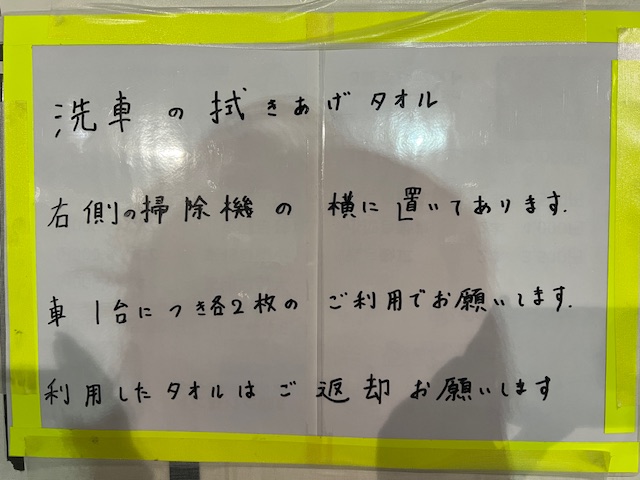 洗車の拭きあげタオル
右側の掃除機の横に置いてあります.
車1台につき各2枚のご利用でお願いします.
利用したタオルはご返却お願いします